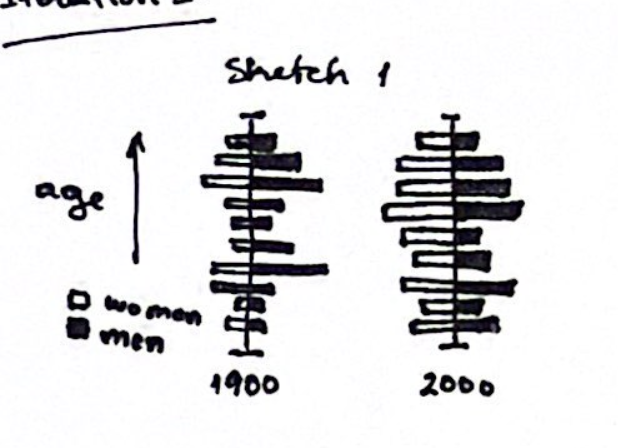 Sketch 1
age
women
men
1900
2000